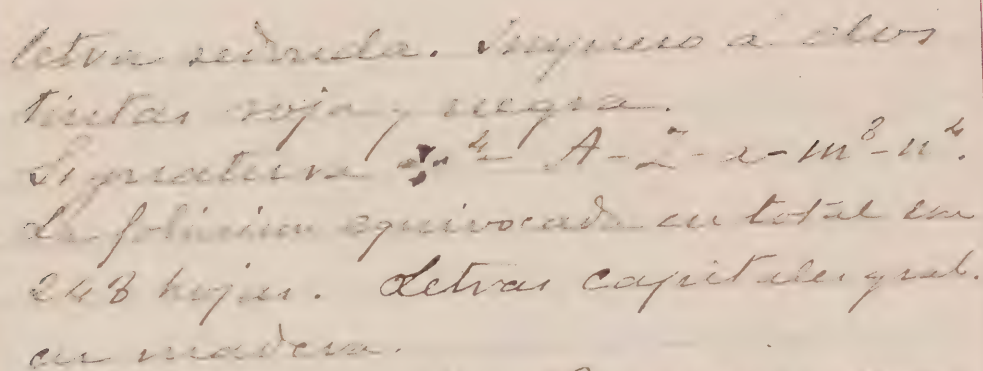 letra redonda. Impreso á dos
tintas roja y negra.
Signatura 4 - A - Z - a - m⁸ - n⁴.
La foliacion equivocada en total son
248 hojas. Letras capitales grab.
en madera.